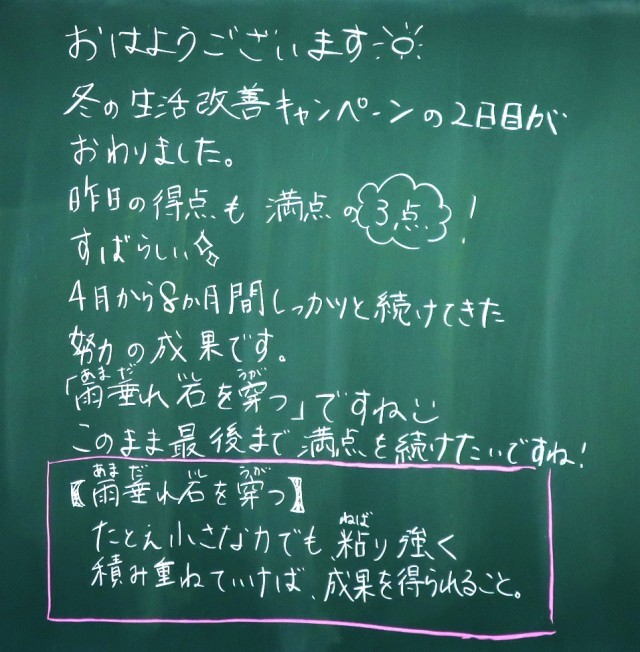 おはようございます
冬の生活改善キャンペーンの2日目が
おわりました。
昨日の得点も満点の3点!
すばらしい
4月から8か月間しっかりと続けてきた
努力の成果です。
あまだ いし うが
「雨垂れ石を穿つ」ですね
このまま最後まで満点を続けたいですね!
あまだ いし うが
【雨垂れ石を穿つ】
ねば
たとえ小さな力でも、粘り強く
積み重ねていけば、成果を得られること。